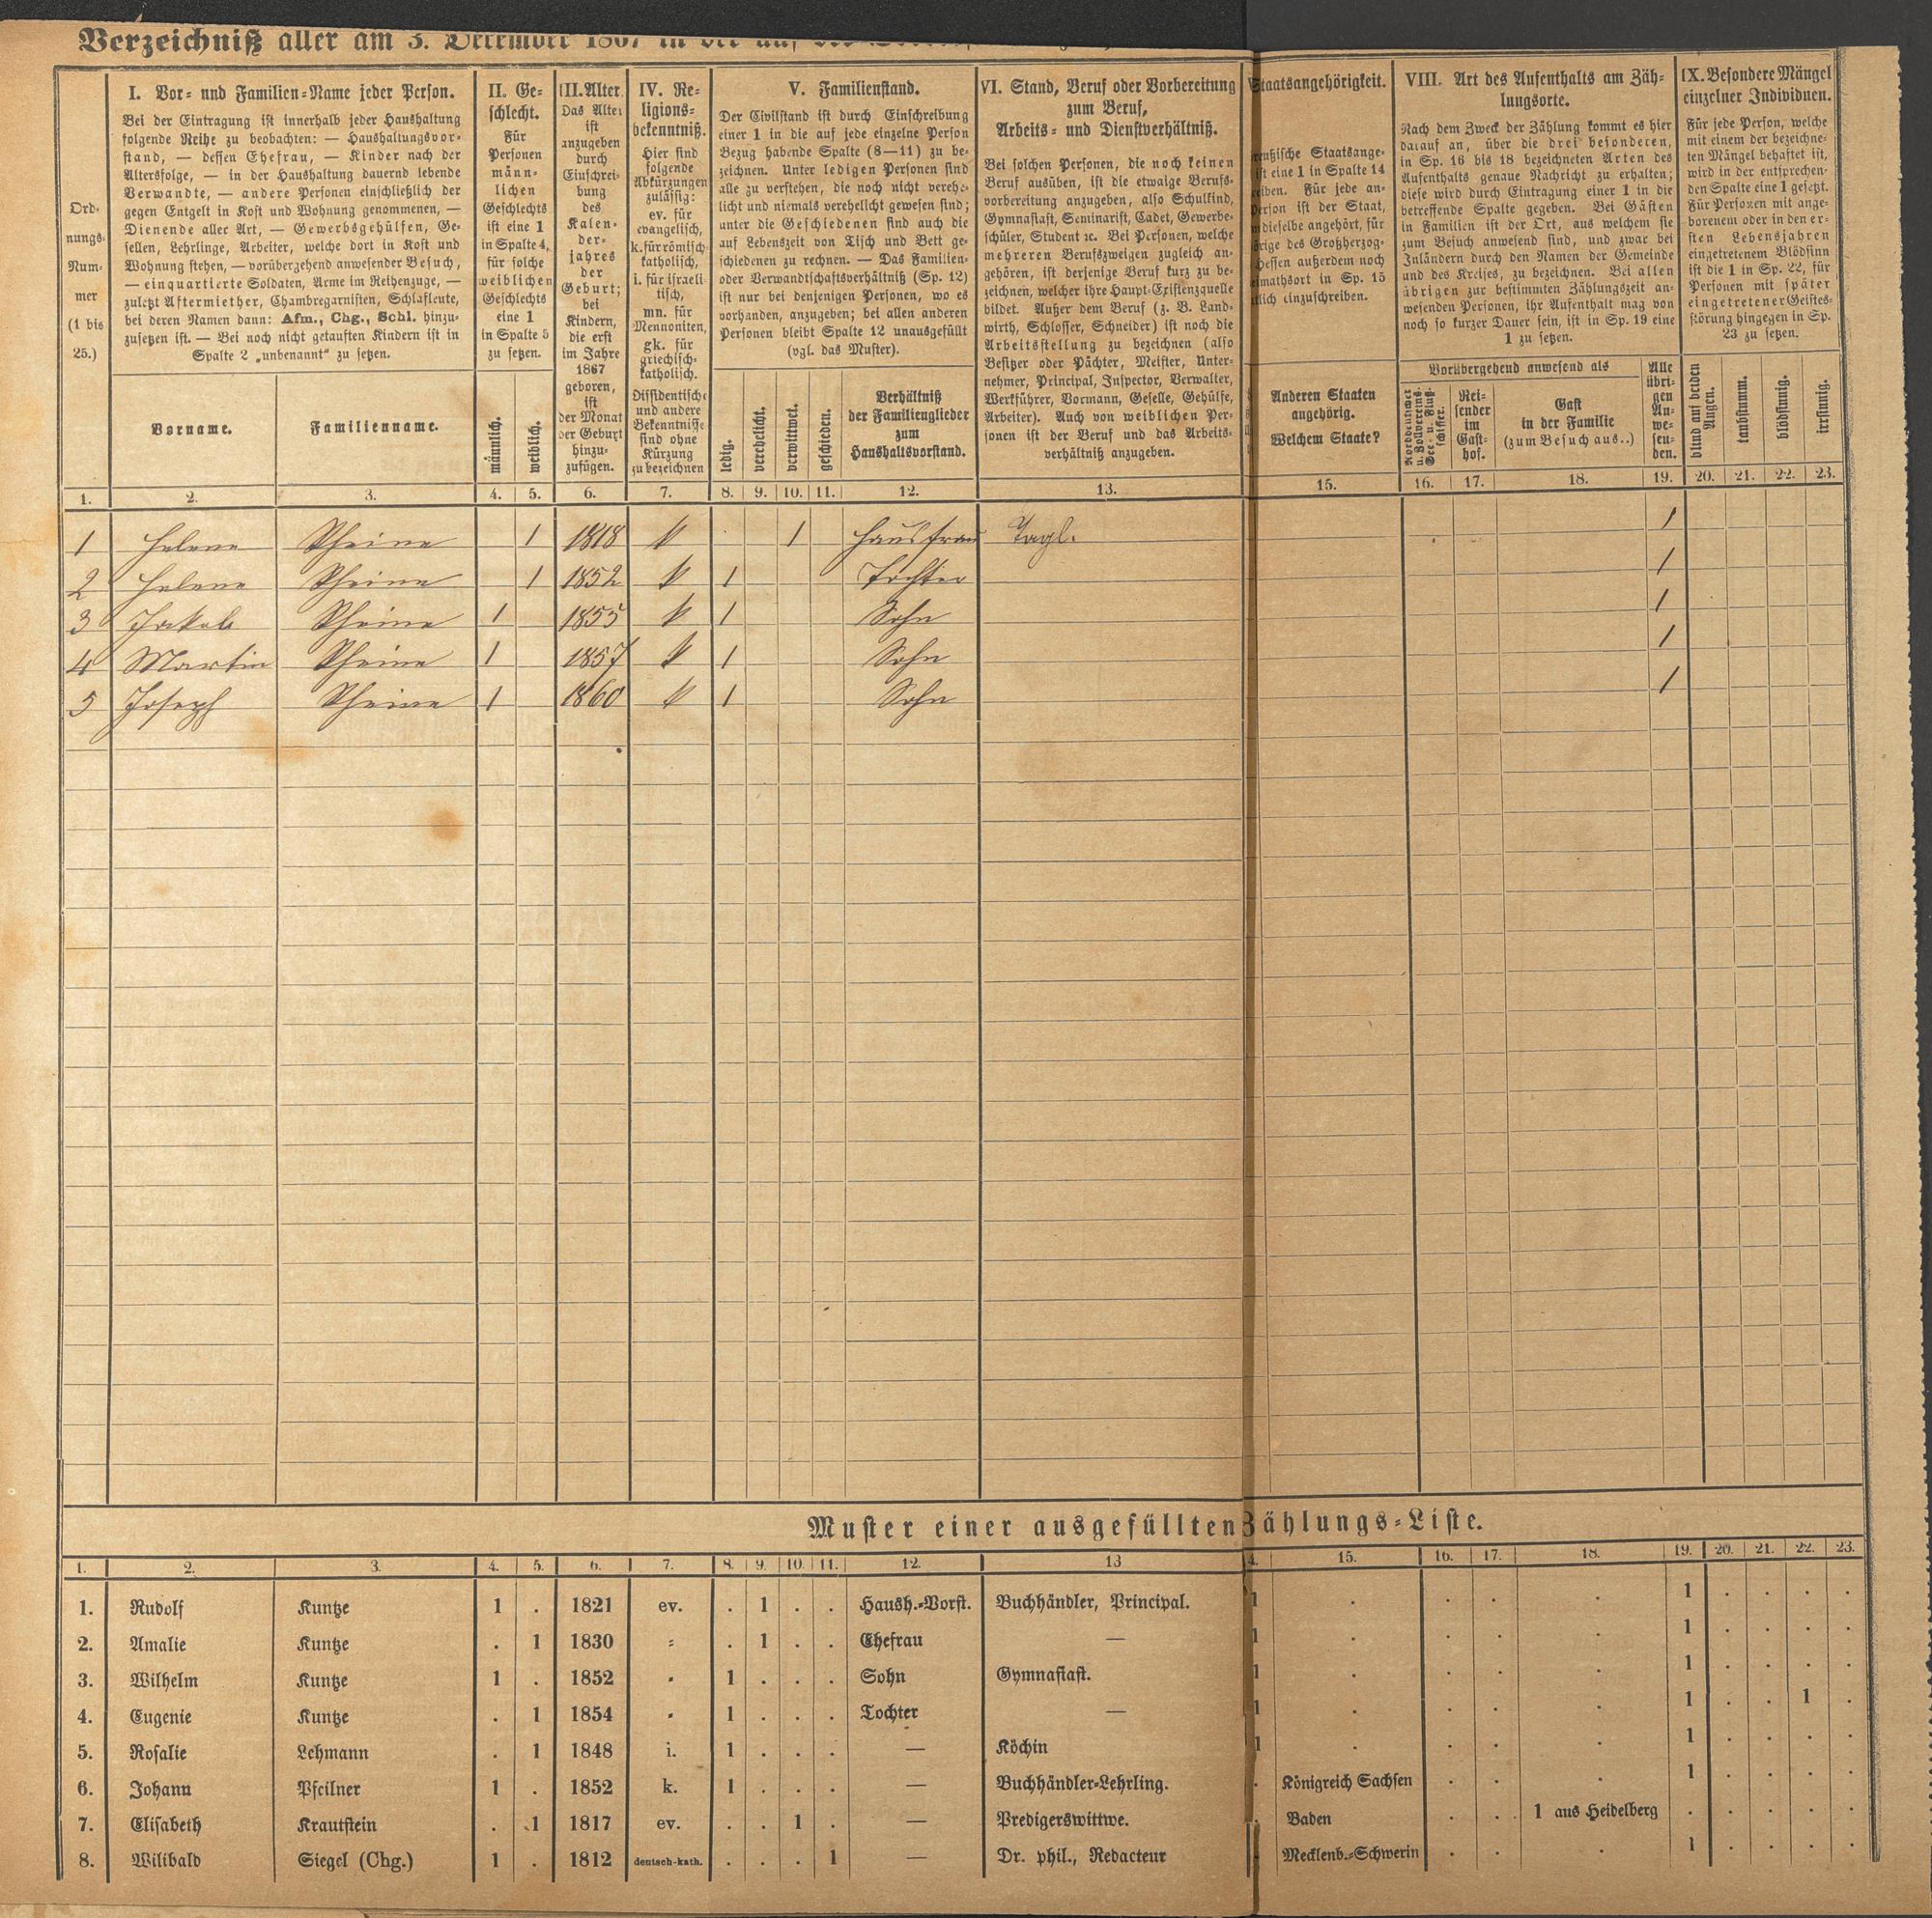 Verzeichniß aller am 3. December 1867 in der auf
I. Vor- und Familien-Name jeder Person.
Bei der Eintragung ist innerhalb jeder Haushaltung
folgende Reihe zu beobachten: — Haushaltungsvor-
stand, — dessen Ehefrau, — Kinder nach der
Altersfolge, — in der Haushaltung dauernd lebende
Verwandte, — andere Personen einschließlich der
gegen Entgelt in Kost und Wohnung genommenen, —
Dienende aller Art, — Gewerbsgehülfen, Ge-
sellen, Lehrlinge, Arbeiter, welche dort in Kost und
Wohnung stehen, — vorübergehend anwesender Besuch,
— einquartierte Soldaten, Arme im Reihenzuge, —
zuletzt Aftermiether, Chambregarnisten, Schlafleute,
bei deren Namen dann: Afm., Chg., Schl. hinzu-
zusetzen ist. — Bei noch nicht getauften Kindern ist in
Spalte 2 „unbenannt“ zu setzen.
Ord-
nungs-
Num-
mer
(1 bis
25.)
Vorname.
Familienname.
II. Ge-
schlecht.
Für
Personen
männ-
lichen
Geschlechts
ist eine 1
in Spalte 4,
für solche
weiblichen
Geschlechts
eine 1
in Spalte 5
zu setzen.
männlich.
weiblich.
III. Alter.
Das Alter
ist
anzugeben
durch
Einschrei-
bung
des
Kalen-
der-
jahres
der
Geburt;
bei
Kindern,
die erst
im Jahre
1867
geboren,
ist
der Monat
der Geburt
hinzu-
zufügen.
IV. Re-
ligions-
bekenntniß.
Hier sind
folgende
Abkürzungen
zulässig:
ev. für
evangelisch,
k. für römisch-
katholisch,
i. für israeli-
tisch,
mn. für
Mennoniten,
gk. für
griechisch-
katholisch.
Dissidentische
und andere
Bekenntnisse
sind ohne
Kürzung
zu bezeichnen
V. Familienstand.
Der Civilstand ist durch Einschreibung
einer 1 in die auf jede einzelne Person
Bezug habende Spalte (8—11) zu be-
zeichnen. Unter ledigen Personen sind
alle zu verstehen, die noch nicht verehe-
licht und niemals verehelicht gewesen sind;
unter die Geschiedenen sind auch die
auf Lebenszeit von Tisch und Bett ge-
schiedenen zu rechnen. — Das Familien-
oder Verwandtschaftsverhältniß (Sp. 12)
ist nur bei denjenigen Personen, wo es
vorhanden, anzugeben; bei allen anderen
Personen bleibt Spalte 12 unausgefüllt
(vgl. das Muster).
ledig.
verehelicht.
verwittwet.
geschieden.
Verhältniß
der Familienglieder
zum
Haushaltsvorstand.
VI. Stand, Beruf oder Vorbereitung
zum Beruf,
Arbeits- und Dienstverhältniß.
Bei solchen Personen, die noch keinen
Beruf ausüben, ist die etwaige Berufs-
vorbereitung anzugeben, also Schulkind,
Gymnasiast, Seminarist, Cadet, Gewerbe-
schüler, Student ic. Bei Personen, welche
mehreren Berufszweigen zugleich an-
gehören, ist derjenige Beruf kurz zu be-
zeichnen, welcher ihre Haupt-Existenzquelle
bildet. Außer dem Beruf (z. B. Land-
wirth, Schlosser, Schneider) ist noch die
Arbeitsstellung zu bezeichnen (also
Besitzer oder Pächter, Meister, Unter-
nehmer, Principal, Inspector, Verwalter,
Werkführer, Vormann, Geselle, Gehülfe,
Arbeiter). Auch von weiblichen Per-
sonen ist der Beruf und das Arbeits-
verhältniß anzugeben.
Staatsangehörigkeit.
eußische Staatsange-
ist eine 1 in Spalte 14
eiben. Für jede an-
erson ist der Staat,
dieselbe angehört, für
rige des Großherzog-
Hessen außerdem noch
eimathsort in Sp. 15
tlich einzuschreiben.
Anderen Staaten
angehörig.
Welchem Staate?
VIII. Art des Aufenthalts am Zäh-
lungsorte.
Nach dem Zweck der Zählung kommt es hier
darauf an, über die drei besonderen,
in Sp. 16 bis 18 bezeichneten Arten des
Aufenthalts genaue Nachricht zu erhalten;
diese wird durch Eintragung einer 1 in die
betreffende Spalte gegeben. Bei Gästen
in Familien ist der Ort, aus welchem sie
zum Besuch anwesend sind, und zwar bei
Inländern durch den Namen der Gemeinde
und des Kreises, zu bezeichnen. Bei allen
übrigen zur bestimmten Zählungszeit an-
wesenden Personen, ihr Aufenthalt mag von
noch so kurzer Dauer sein, ist in Sp. 19 eine
1 zu setzen.
Vorübergehend anwesend als
Norddeutscher
u. Zollvereins-
See- u. Fluß-
schiffer.
Rei-
sender
im
Gast-
hof.
Gast
in der Familie
(zum Besuch aus..)
Alle
übri-
gen
An-
we-
sen-
den.
IX. Besondere Mängel
einzelner Individuen.
Für jede Person, welche
mit einem der bezeichne-
ten Mängel behaftet ist,
wird in der entsprechen-
den Spalte eine 1 gesetzt.
Für Personen mit ange-
borenem oder in den er-
sten Lebensjahren
eingetretenem Blödsinn
ist die 1 in Sp. 22, für
Personen mit später
eingetretener Geistes-
störung hingegen in Sp.
23 zu setzen.
blind auf beiden
Augen.
taubstumm.
blödsinnig.
irrsinnig.
1. 2. 3. 4. 5. 6. 7. 8. 9. 10. 11. 12. 13. 15. 16. 17. 18. 19. 20. 21. 22. 23.
1 Helene Rheine 1 1818 k 1 Hausfrau Tagl. 1
2 Helene Rheine 1 1852 k 1 Tochter 1
3 Jakob Rheine 1 1855 k 1 Sohn 1
4 Martin Rheine 1 1857 k 1 Sohn 1
5 Joseph Rheine 1 1860 k 1 Sohn 1
Muster einer ausgefüllten Zählungs-Liste.
1. 2. 3. 4. 5. 6. 7. 8. 9. 10. 11. 12. 13 4. 15. 16. 17. 18. 19. 20. 21. 22. 23.
1. Rudolf Kuntze 1 . 1821 ev. . 1 . . Haush.-Vorst. Buchhändler, Principal. 1 . . . . 1 . . . .
2. Amalie Kuntze . 1 1830 = . 1 . . Ehefrau — 1 . . . . 1 . . . .
3. Wilhelm Kuntze 1 . 1852 = 1 . . . Sohn Gymnasiast. 1 . . . . 1 . . . .
4. Eugenie Kuntze . 1 1854 = 1 . . . Tochter — 1 . . . . 1 . . 1 .
5. Rosalie Lehmann . 1 1848 i. 1 . . . — Köchin 1 . . . . 1 . . . .
6. Johann Pfeilner 1 . 1852 k. 1 . . . — Buchhändler-Lehrling. . Königreich Sachsen . . . 1 . . . .
7. Elisabeth Krautstein . 1 1817 ev. . . 1 . — Predigerswittwe. . Baden . . 1 aus Heidelberg . . . . .
8. Wilibald Siegel (Chg.) 1 . 1812 deutsch-kath. . . . 1 — Dr. phil., Redacteur . Mecklenb.-Schwerin . . . 1 . . . .